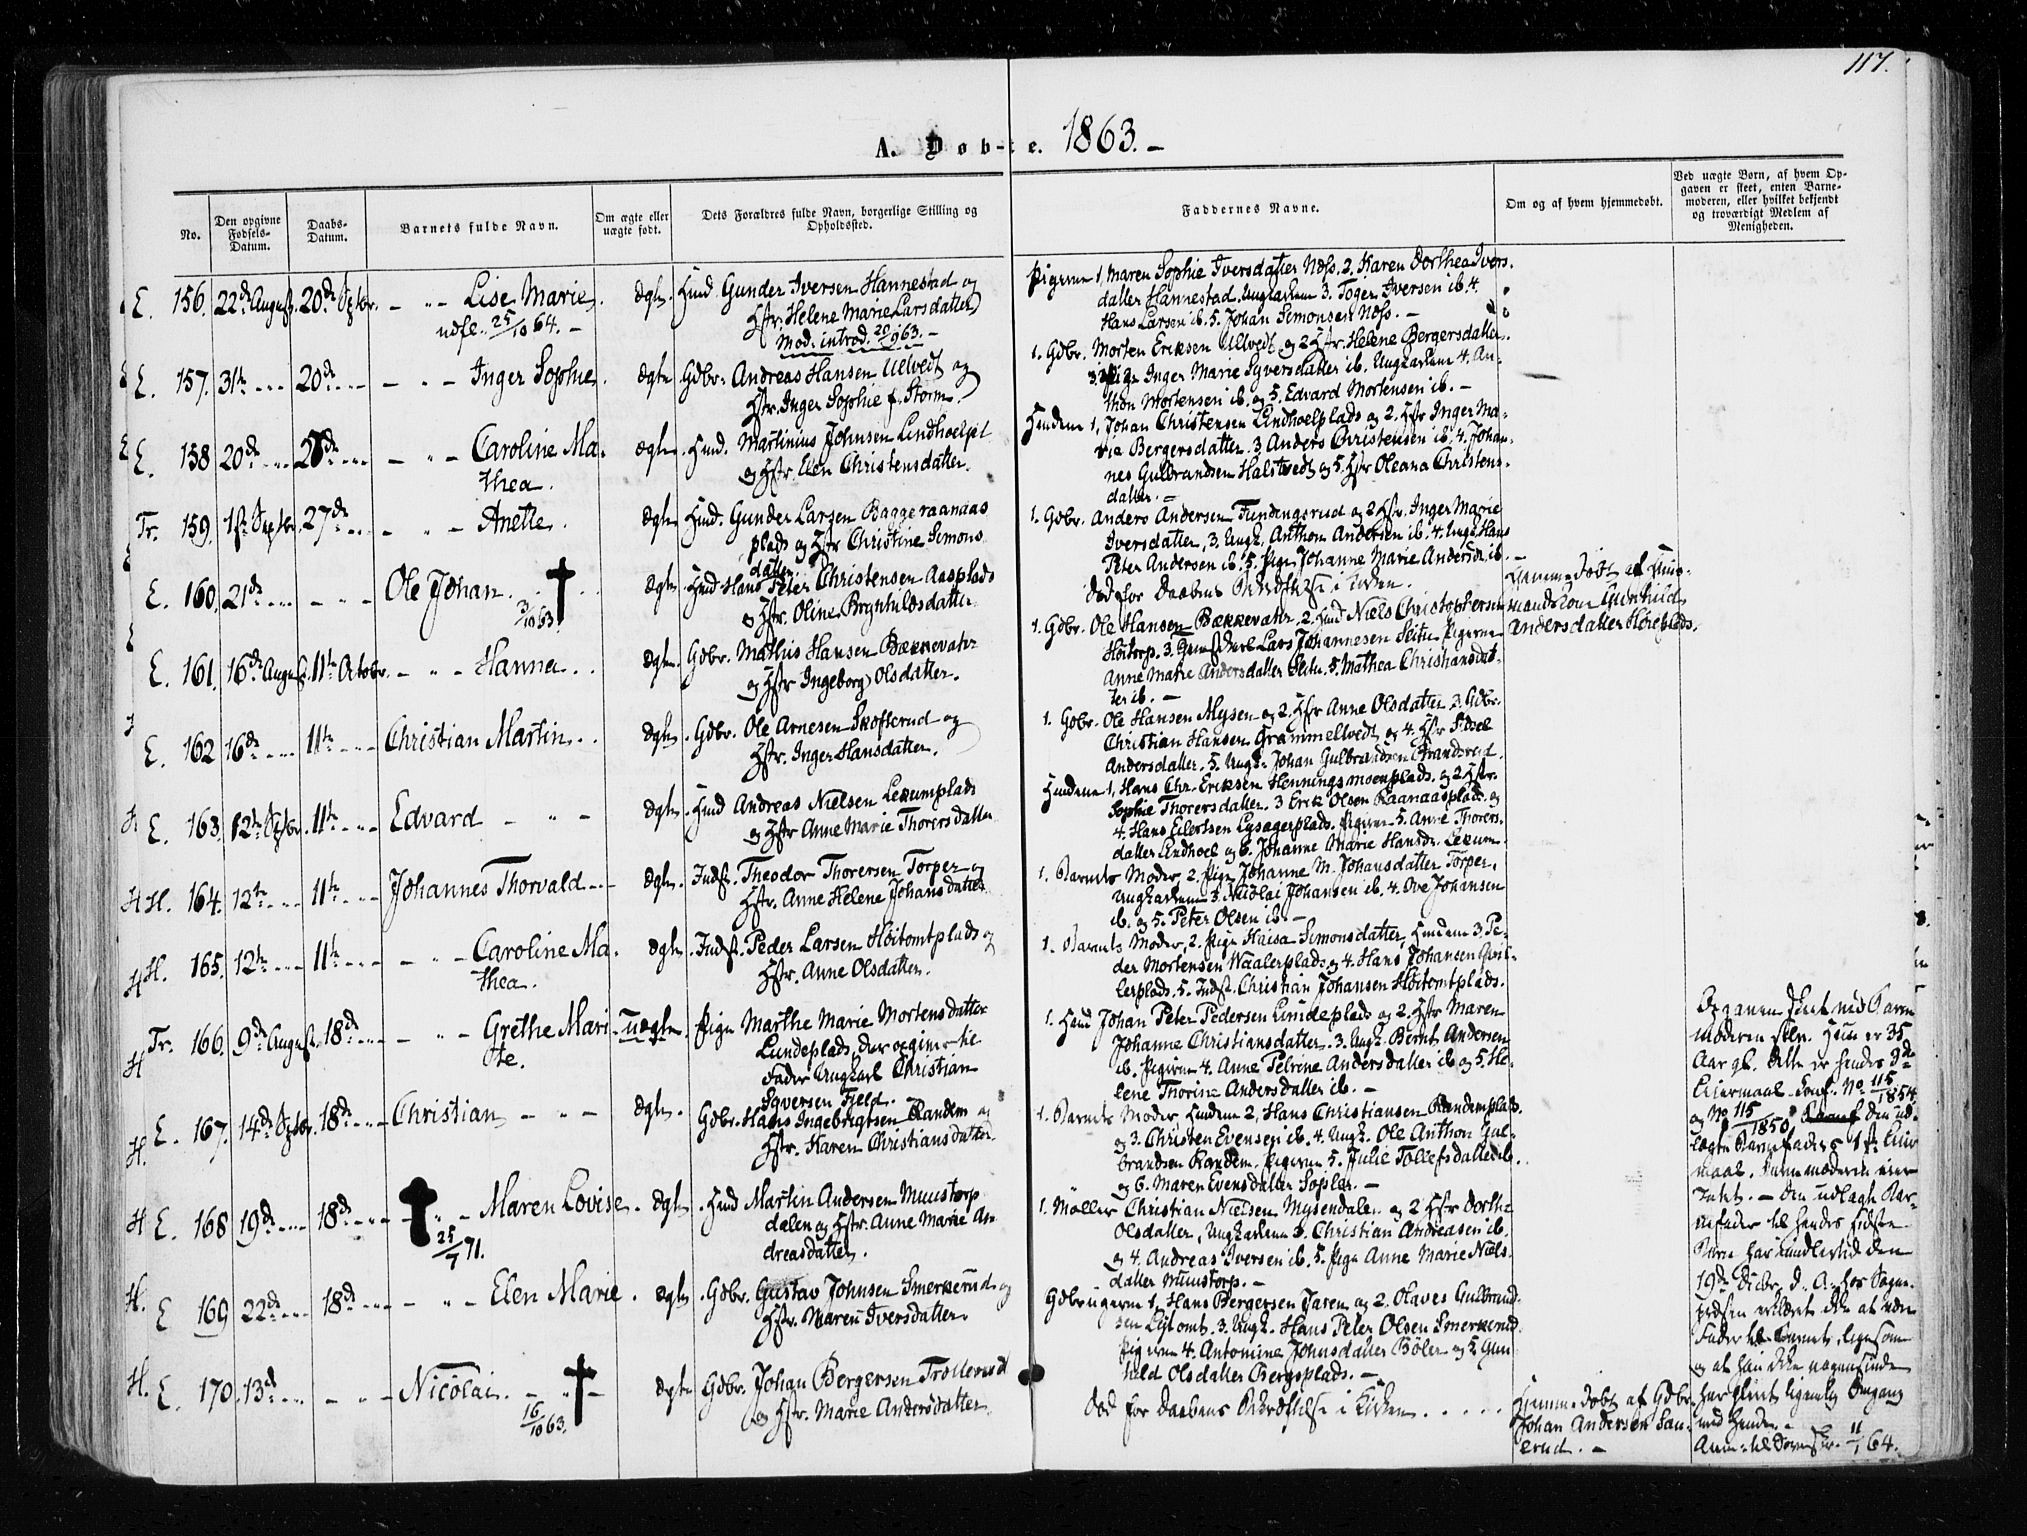 117.
A. Døbte. 1863. —
No.
Den opgivne Fødsels-Datum.
Daabs-Datum.
Barnets fulde Navn.
Om ægte eller uægte født.
Dets Forældres fulde Navn, borgerlige Stilling og Opholdssted.
Faddernes Navne.
Om og af hvem hjemmedøbt.
Ved uægte Børn, af hvem Opgaven er skeet, enten Barnemoderen, eller hvilket bekjendt og troværdigt Medlem af Menigheden.
E. 156. 22de August. 20de Septbr. — „ — Lise Marie. ægte. Husmd. Gunder Iversen Hannestad og
Hstr. Helene Marie Larsdatter
25/10 64. —
Mod. introd. 20/9 63. —
Pigerne 1, Maren Sophie Iversdatter Næss. 2. Karen Dorthea Ivers-
datter Hannestad. Ungkarlene 3. Toger Iversen ib. 4.
Hans Larsen ib. 5. Johan Simonsen Næss. —
E. 157. 31te 20de — „ — Inger Sophie. ægte Gdbr. Andreas Hansen Ulvedt og
Hstr. Inger Sophie f. Storm.
1. Gdbr. Morten Eriksen Ulvedt og 2 Hstr. Helene Bergersdatter.
3. Pige Inger Marie Syversdatter ib. Ungkarlene 4. An-
thon Mortensen ib. og 5. Edvard Mortensen ib. —
E. 158 20de — „ — Caroline Ma-
thea. ægte Husmd. Martinius Johnsen Lindhoelpl
og Hstr. Elen Christensdatter.
1, Johan Christensen Lindhoelplads og 2. Hstr Inger Ma-
rie Bergersdatter. 3 Anders Christensen ib. 4. Johan-
nes Gulbrandsen Halstvedt og 5. Hstr Oleana Christens-
datter. —
Tr. 159. 1ste Septbr. 27de — „ — Anette. ægte Husmd. Gunder Larsen Baggeraanaas
plads og Hstr Christine Simons
datter.
1. Gdbr. Anders Andersen Fundingsrud og 2 Hstr. Inger Marie
Iversdatter, 3. Ungk. Anthon Andersen ib. 4. Ungk. Hans
Peter Andersen ib. 5. Pige Johanne Marie Andersdr. ib.
E. 160. 21de — „ — Ole Johan. 3/10 63. ægte Husmd Hans Peter Christensen Aasplads
og Hstr. Oline Brynhildsdatter
død før Daabens Bekræftelse i Kirken.
Hjemmedøbt af Huus-
mandskone Gunhild
Andersdatter
E. 161. 16de August. 11te Octobr. — „ — Hanna. ægte. Gdbr. Mathis Hansen Bækkevahr
og Hstr Ingeborg Olsdatter.
1. Gdbr. Ole Hansen Bækkevahr. 2. Husmd Niels Christophersen
Høitorp. 3. Lars Johannesen Pigerne
Anne Marie Andersdatter 5. Mathea Christiansdat-
ter ib. —
E. 162 16de 11te Christian Martin. ægte. Gdbr. Ole Arnesen Skofterud og
Hstr. Inger Hansdatter.
1. Gdbr. Ole Hansen Mysen og 2. Hstr Anne Olsdatter 3. Gdbr.
Christian Hansen Grammeltvedt og 4. Hstr Sidsel
Andersdatter. 5. Ungk. Johan Gulbrandsen
E. 163. 12te Septbr. 11te Edvard — „ — ægte. Husmd Andreas Nielsen Lekumplads
og Hstr Anne Marie Thorersdatter
1, Hans Chr. Eriksen Henningsmoenplads. og 2 Hstr.
Sophie Thorersdatter. 3 Erik Olsen Raanaasplads. og
4. Hans Eilertsen Lysagerplads. Pigerne 5. Anne Thorers-
datter Lindhoel og 6. Johanne Marie Hansdr. Lekum.
H. 164. 12te 11te Johannes Thorvald — ægte. Indst. Theodor Thorersen Torper og
Hstr. Anne Helene Johansdatter
1. Barnets Moder, 2. Pige Johanne M. Johansdatter Torper.
Ungkarlene 3. Nicolai Johansen ib. 4. Ove Johansen
ib. og 5. Peter Olsen ib. —
H. 165. 12te 11te — „ — Caroline Ma-
thea. ægte Indst. Peder Larsen Høitomtplads og
Hstr. Anne Olsdatter.
1. Barnets Moder, 2. Pige Simonsdatter 3. Pe-
der Mortensen Waalerplads og 4. Hans Johansen
lerplads. 5. Indst. Christian Johansen Høitomtplads.
Tr. 166. 9de August. 18de — „ — Grethe Mari-
e. uægte Pige Marthe Marie Mortensdatter
Lundeplads, der opgiver til
Fader Ungkarl Christian
Syversen Fjeld. —
1. Husmd Johan Peter Pedersen Lundeplads og 2. Hstr Maren
Johanne Christiansdatter. 3. Ungk. Bernt Andersen
ib. Pigerne 4. Anne Petrine Andersdatter ib og 5. He-
lene Thorine Andersdatter ib. —
Opgaven skeet ved Barne-
moderen selv. Hun er 35
Aar gl. Dette er hendes 3de
Leiermaal. Conf. No 115/1854
og No 115/1850. den ud-
lagte Barnefaders 1ste Leier
maal. —
— Den udlagte Bar-
nefader til hendes sidste
Barn har imidlertid den
19de Decbr. d. A. hos Sogne-
præsten erklæret ikke at være
Fader til Barnet, ligesom
og at han ikke nogensinde
har pleiet ligemlig Omgang
med hende. —
11/1 64.
E. 167. 14de Septbr. 18de Christian — „ — ægte. Gdbr. Hans Ingebrigtsen Randem og
Hstr. Karen Christiansdatter
1. Barnets Moder 2, Hans Christiansen Randemplads.
og 3. Christen Evensen ib. 4. Ungk. Ole Anthon Gul-
brandsen Randem. Pigerne 5. Julie Tollefsdatter ib.
og 6. Maren Evensdatter —
E. 168 19de 18de — „ — Maren Lovise. 25/7 71. ægte. Husmd Martin Andersen Muustorp
dalen og Hstr. Anne Marie An
dreasdatter.
1. Møller Christian Nielsen Mysendalen og 2 Hstr Dorthe
Olsdatter, Ungkarlene 3. Christian Andreasen ib.
og 4. Andreas Iversen ib. 5. Pige Anne Marie Niels-
datter Muustorp. —
E 169 22de 18de — „ — Elen Marie. ægte. Gdbr. Gustav Johnsen Smerkerud og
Hstr. Maren Iversdatter.
Gdbrugerne 1. Hans Bergersen Jaren og 2. Olaves Gulbrand-
sen 3. Ungk. Hans Peter Olsen Smerkerud
Pigerne 4. Antonine Johnsdatter Bøler og 5 Gun
hild Olsdatter Bergsplads. —
E. 170. 13de — „ — Nicolai. 16/10 63. ægte Gdbr. Johan Bergersen Trollerud
og Hstr. Marie Andersdatter
død før Daabens Bekræftelse i Kirken
Hjemmedøbt af Gdbr.
Johan Andersen San-
erud. —